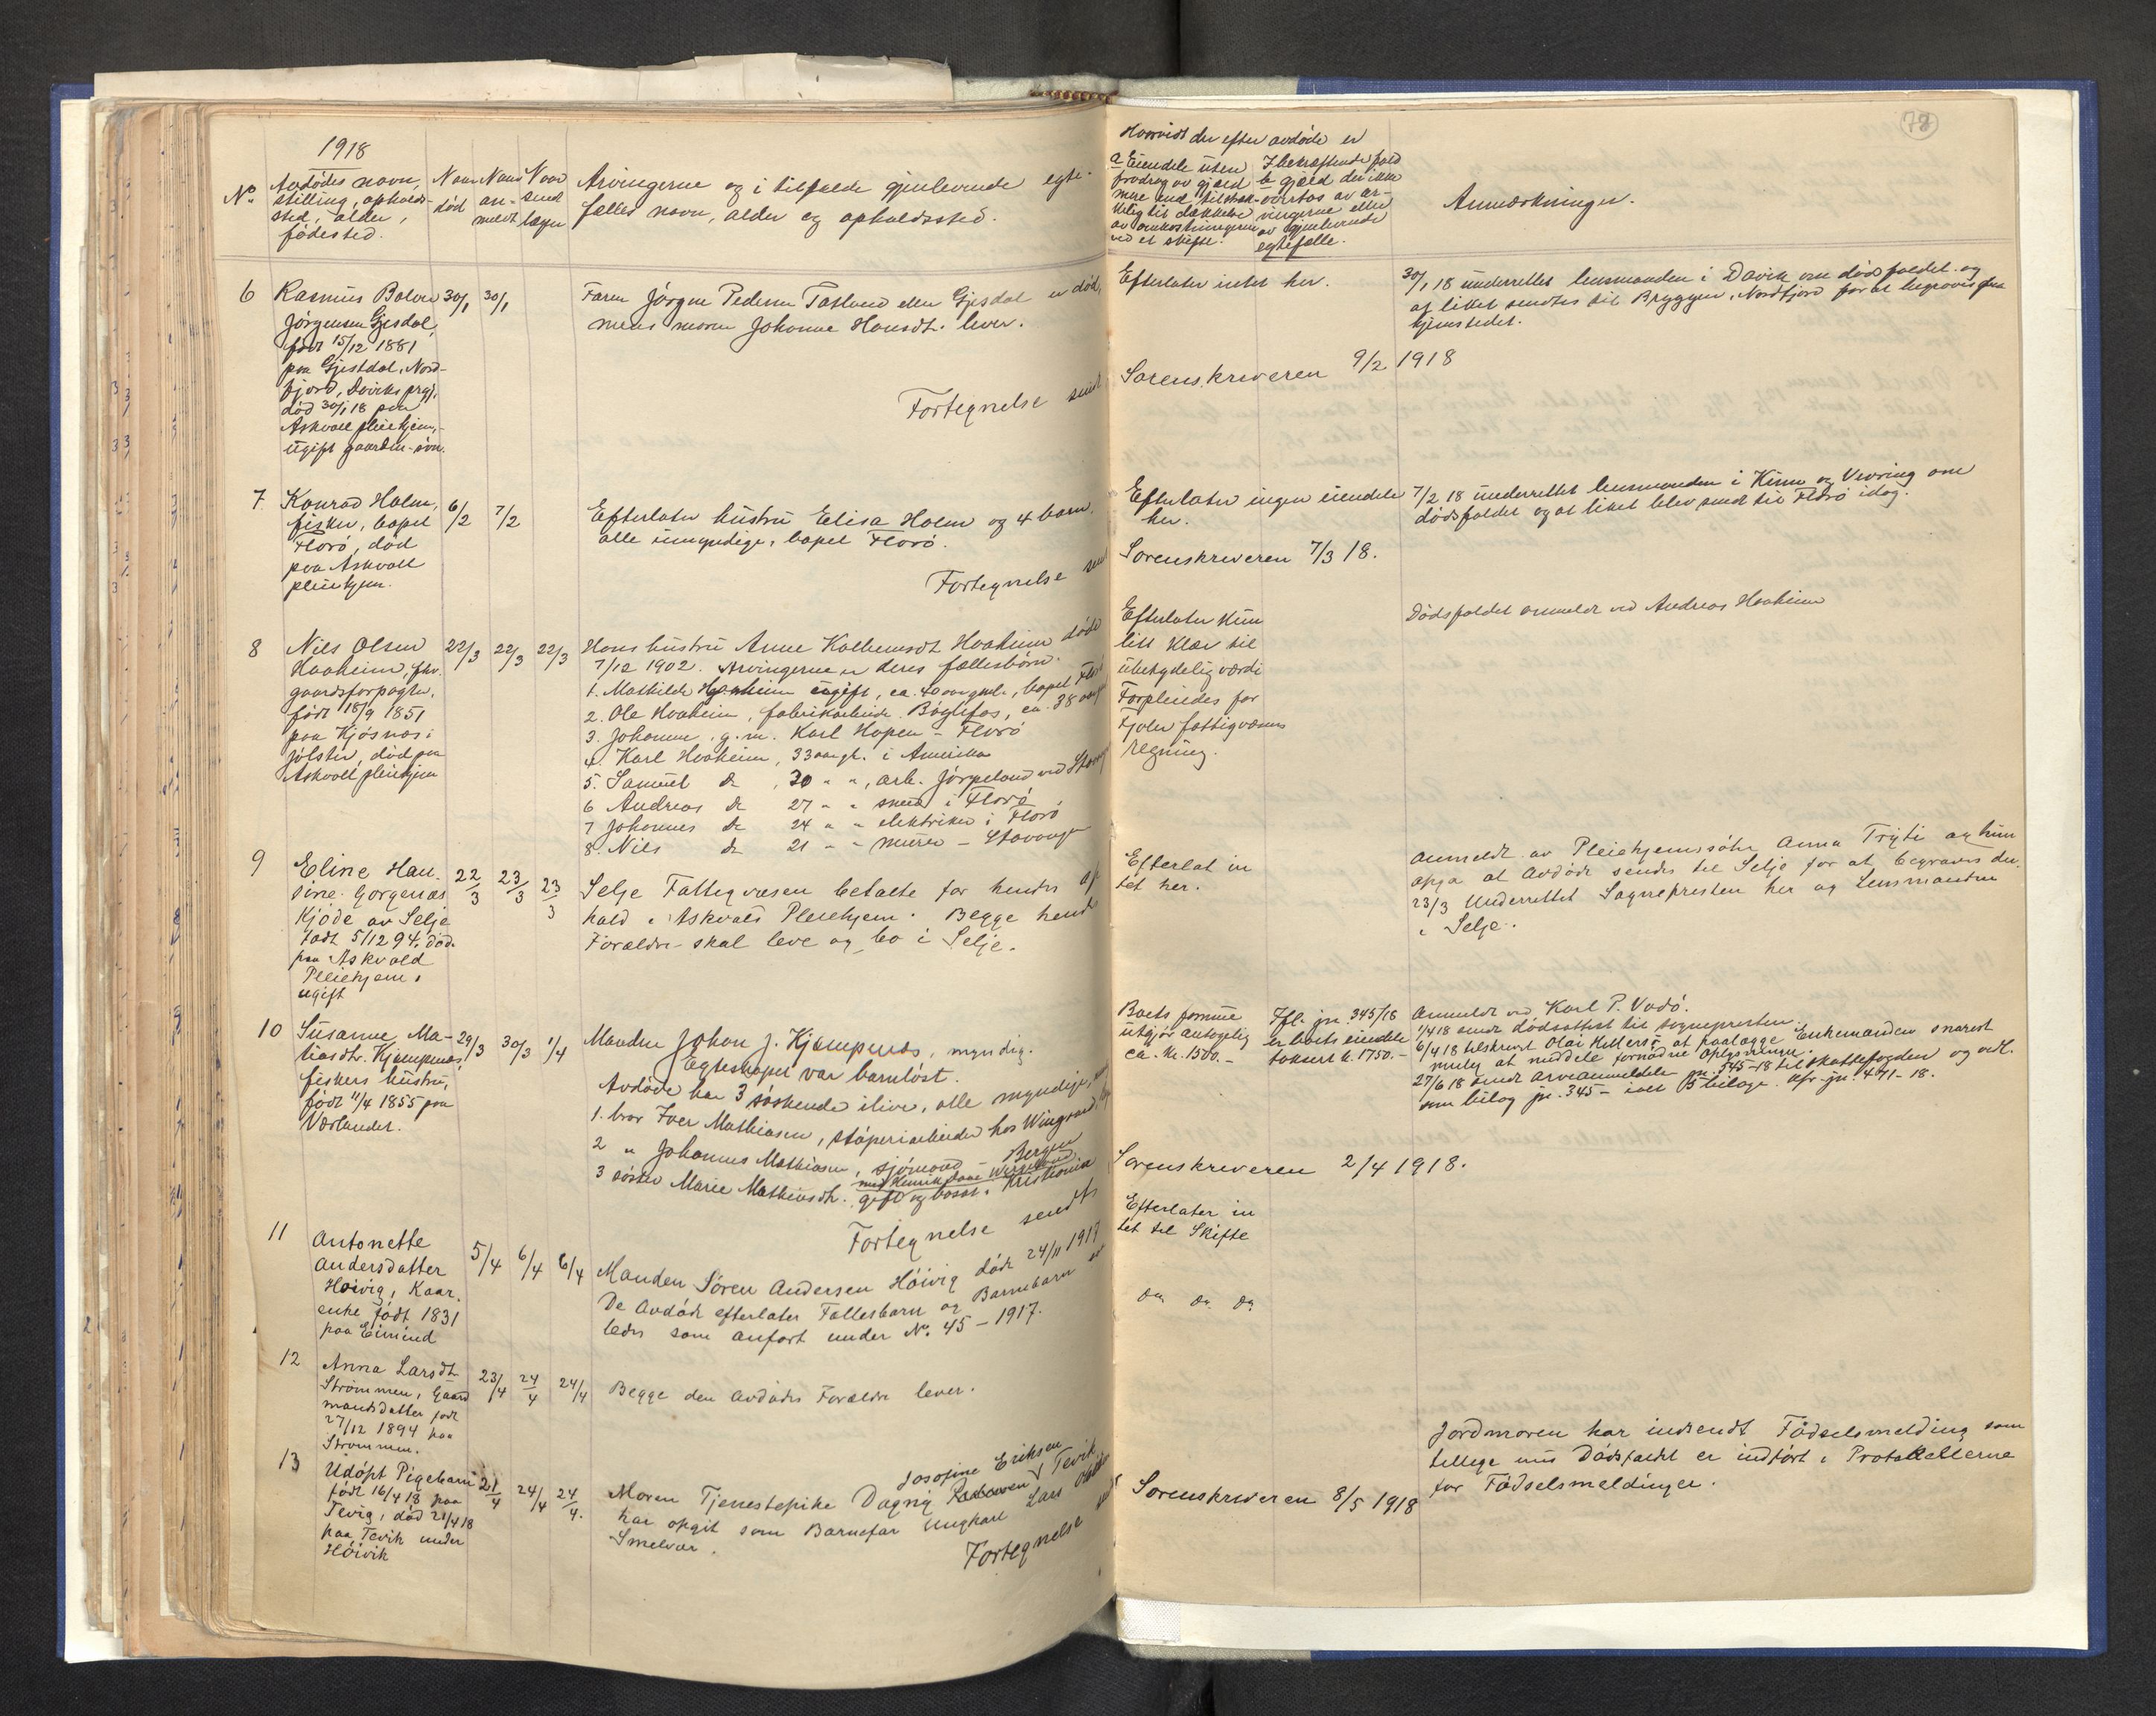 78
1918
No
Avdödes navn,
stilling, opholds-
sted, alder,
födested.
Naar
död
Naar
an-
meldt
Naar
send
lægn
Arvingerne og i tilfælde gjenlevende egte-
fælles navn, alder og opholdssted.
Hvorvidt der efter avdöde er
a Eiendele uten
fradrag av gjæld
mere end tilstræk-
kelig til dækkelse
av omkostningerne
ved et skifte.
I bekræftende fald
b gjæld der ikke
overtas av ar-
vingerne eller
av gjenlevende
egtefælle.
Anmærkninger.
6
Rasmus Bolen
Jörgensen Gjesdal,
född 15/12 1881
paa Gjestdal, Nord-
fjord, Daviks prgj,
död 30/1 18 paa
Askvoll pleiehjem,
ugift gaardm. sön.
30/1
30/1
Faren Jörgen Pedersen Tatlend eller Gjesdal er död,
mens moren Johanne Hansdt. lever.
Fortegnelse sendt
Efterlater intet her.
Sorenskriveren 9/2 1918
30/1 18 underrettet lensmanden i Davik om dödsfaldet og
at liket sendtes til Bryggen, Nordfjord for at begraves fra
hjemstedet.
7
Konrad Holm,
fisker, bopel
Florö, död
paa Askvoll
pleiehjem.
6/2
7/2
Efterlater hustru Elisa Holm og 4 barn,
alle umyndige, bopel Florö.
Fortegnelse send
Efterlater ingen eiendele
her.
Sorenskriveren 7/3 18.
7/2 18 underrettet lensmanden i Kinn og Vevring om
dödsfaldet og at liket blev sendt til Florö idag.
8
Nils Olsen
Haaheim, fhv.
gaardsforpagter,
född 18/9 1851
paa Kjösnæs i
Jölster, död paa
Askvoll pleiehjem
22/3
22/3
22/3
Hans hustru Anne Kolbeinsdt Haaheim döde
7/12 1902. Arvingerne er deres fællesbörn.
1. Mathilde Haaheim ugift, ca. 40 aar gml., bopel Florö
2. Ole Haaheim, fabrikarbeider Böylefos, ca. 38 aar
3. Johanne, g. m. Karl Hopen - Florö
4. Karl Haaheim, 33 aar gl. i Amerika
5. Samuel do , 30 " ", arb. Jörpeland ved Stavang
6 Andreas do 27 " " smed i Florö
7 Johannes do 24 " " elektriker i Florö
8. Nils do 21 " " murer - Stavanger
Efterlater kun
litt klær til
ubetydelig værdi
Forpleiedes for
Fjaler fattigvæsens
regning.
Dödsfaldet anmeldt ved Andreas Haaheim
9
Eline Han-
sine Gorgenæs
Kjöde av Selje
Födt 5/12 94. död
paa Askvold
Pleiehjem,
ugift
22/3
23/3
23/3
Selje Fattigvæsen betalte for hendes op
hald i Askvolds Pleiehjem. Begge hendes
Forældre skal leve og bo i Selje.
Efterlat in
tet her.
Anmeldt av Pleiehjemssöster Anna Tryti og hun
opga at Avdöde sendes til Selje for at begraves der.
23/3 Underrettet Sognepresten her og Lensmanden
i Selje.
10
Susanne Ma-
tiasdtr. Kjempenæs,
fiskers hustru,
födt 11/4 1855 paa
Værlandet.
29/3
30/3
1/4
Manden Johan J. Kjempenæs, myndig.
Egteskapet var barnlöst.
Avdöde har 3 söskende ilive, alle myndige,
1. bror Iver Mathiasen, stöperiarbeider hos Wingaard,
2 " Johannes Mathiasen, sjömand Bergen
med Henrik Wergeland
3 söster Marie Mathiasdtr. gift og bosat i Kristiania
Fortegnelse sendts
Boets formue
utgjör antagelig
ca. kr. 1500.-
Ifl. jr. 345/18
er boets eiendele
taksert kr. 1750.-
Sorenskriveren 2/4 1918.
Anmeldt ved Karl P. Vadö.
1/4 18 sendt dödsattest til sognepresten.
6/4 18 tilskrevet Olai Hellersö at paalægge Enkemanden snarest
mulig at meddele fornödne oplysninger.
27/6 18 sendt arveanmeldelse jr. 345-18 til skattefogden og vedl.
som bilag jr. 345 - ialt 5 bilage. Kfr. jr. 471-18.
11
Antonette
Andersdatter
Höivig, Kaar.
enke född 1831
paa Eimind
5/4
6/4
6/4
Manden Sören Andersen Höivig döde 24/11 1917
De Avdöde efterlater Fællesbarn og Barnebarn
ledes som anfört under No. 45 - 1917.
Efterlater in
tet til Skifte
12
Anna Larsdt
Strömmen, Gaard
mandsdatter född
27/12 1894 paa
Strömmen.
23/4
24/4
24/4
Begge den Avdödes Forældre lever.
do do do
13
Udöpt Pigebarn
född 16/4 18 paa
Tevig, död 21/4 18
paa Tevik under
Höivik
21/4
24/4
24/4.
Josofine Eriksen
Moren Tjenestepike Dagny Tevik
har opgit som Barnefar Ungkarl Lars
Smelvær.
Fortegnelse
Sorenskriveren 8/5 1918
Jordmoren har indsendt Födselsmelding som
tillige med Dödsfaldet er indfört i Protokollerne
for Födselsmeldinger.